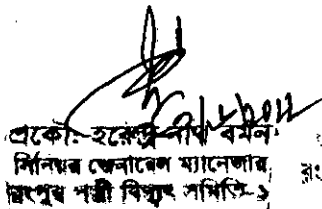 প্রকৌঃ হরেন্দ্র নাথ বর্মন
সিনিয়র জেনারেল ম্যানেজার
রংপুর পল্লী বিদ্যুৎ সমিতি-১
রং